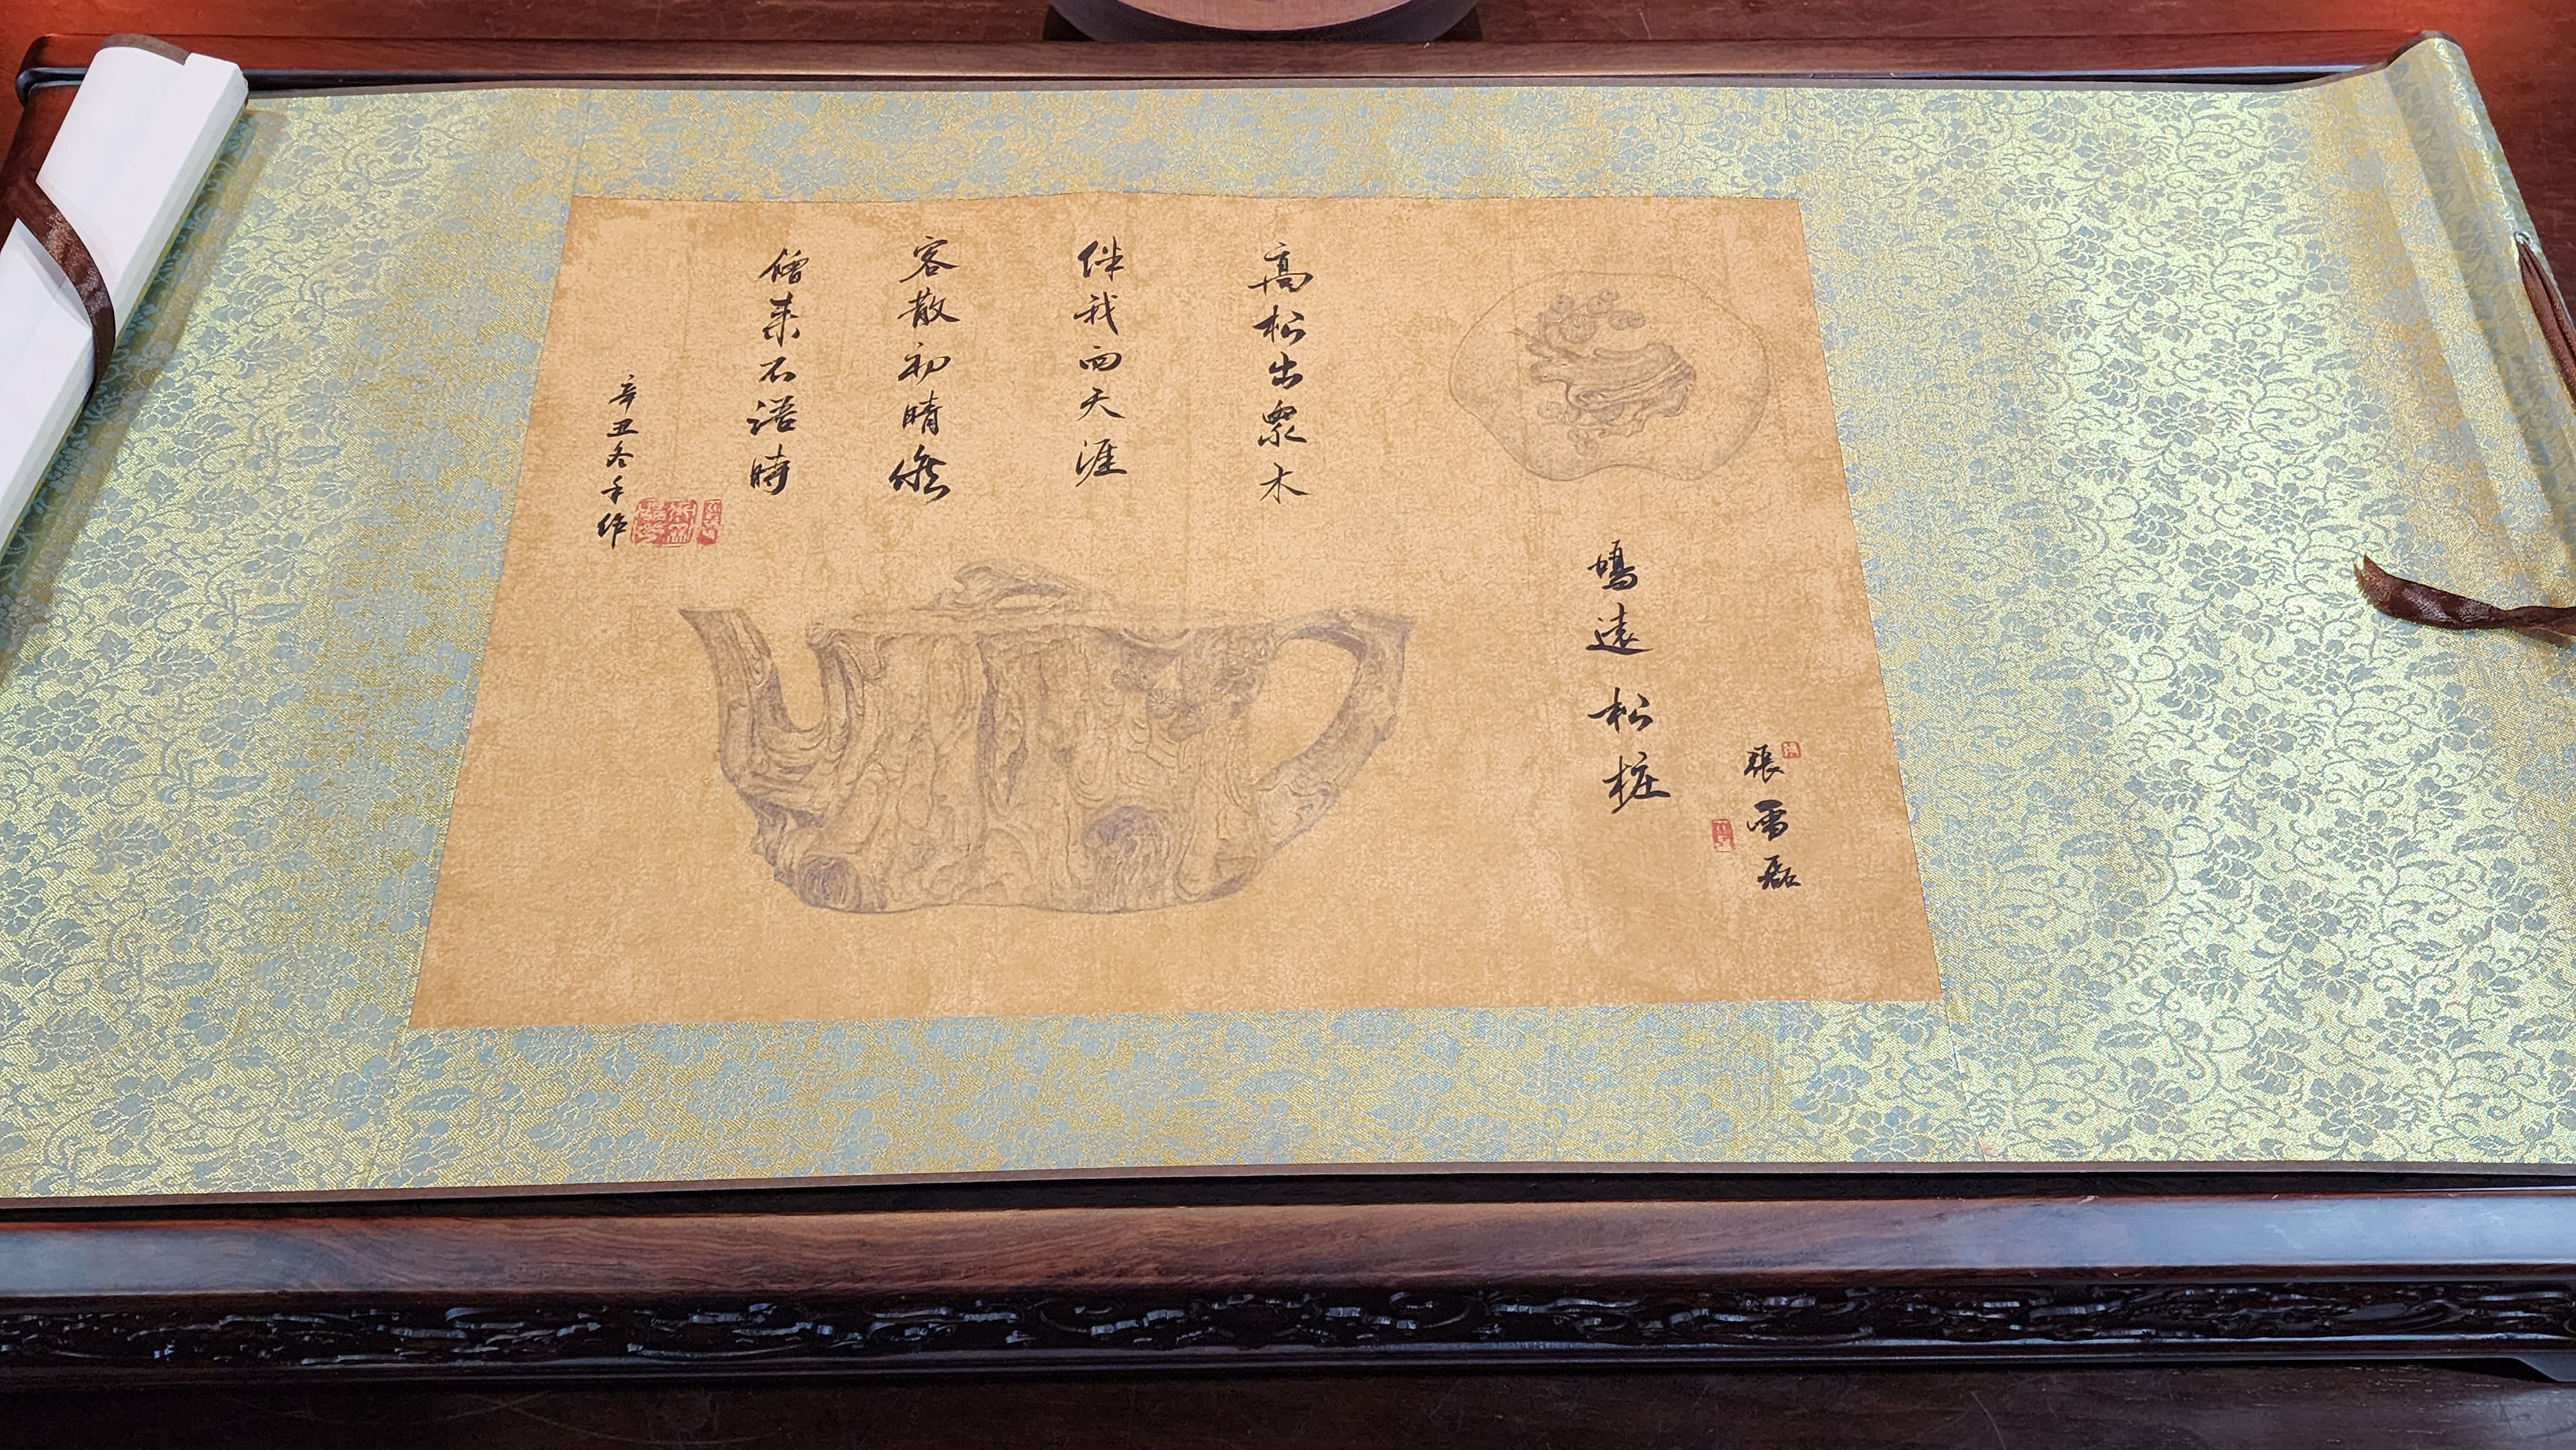 張雷磊
鳴遠松桩
高松出眾木
伴我向天涯
客散初晴後
僧來不語時
辛丑冬手作